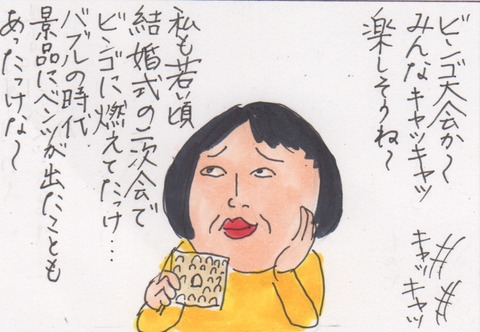 ビンゴ大会か〜
みんなキャッキャッ
楽しそうね〜
キャッキャッ
私も若い頃
結婚式の二次会で
ビンゴに燃えてたっけ…
バブルの時代
景品にベンツが出たことも
あったっけな〜